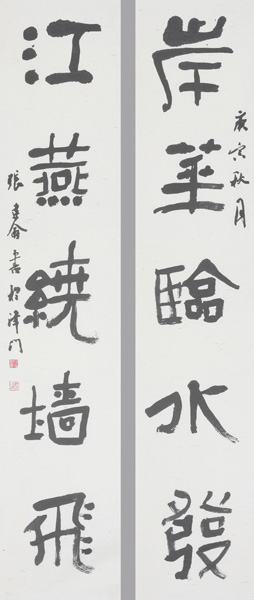 岸花臨水發
庚寅秋月
江燕繞墙飛
張建會書於津門